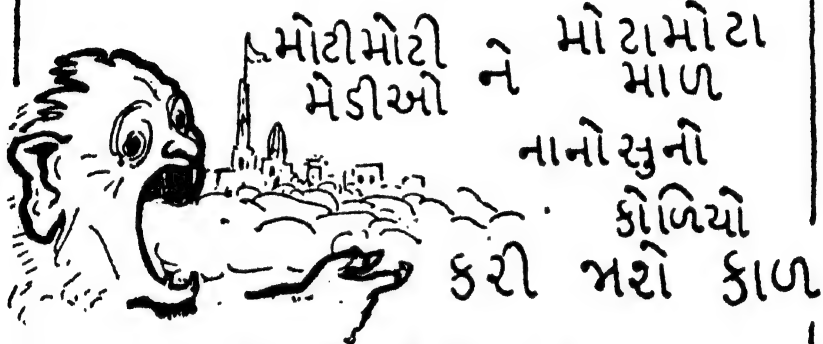 મોટીમોટી મેડીઓ ને મોટામોટા માળ
નાનોસુનો
કોળિયો
કરી જાશે કાળ